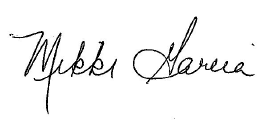 Mikki Garcia